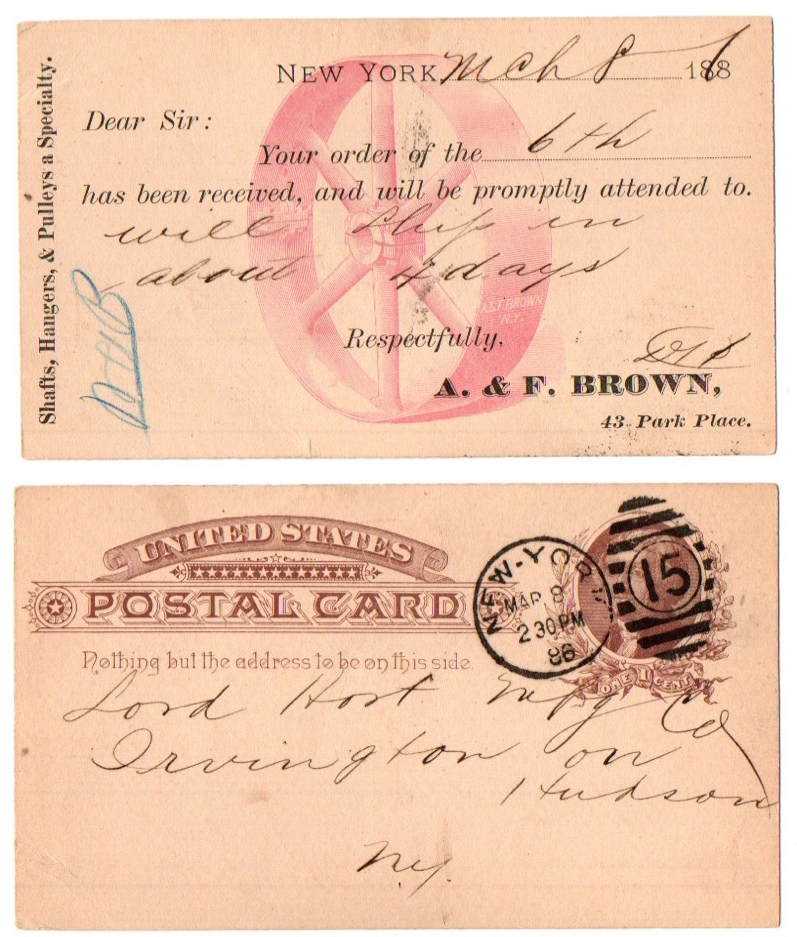 Shafts, Hangers, & Pulleys a Specialty.
NEW YORK, Mch 8 1886
Dear Sir:
Your order of the 6th
has been received, and will be promptly attended to.
will ship in
about 4 days
A.& F. BROWN
N.Y.
Respectfully,
A. & F. BROWN,
43 Park Place.
UNITED STATES
POSTAL CARD
Nothing but the address to be on this side.
NEW-YORK
MAR 8
2 30 PM
86
15
ONE 1 CENT
Lord Mfg Co
Irvington on
Hudson
N.Y.